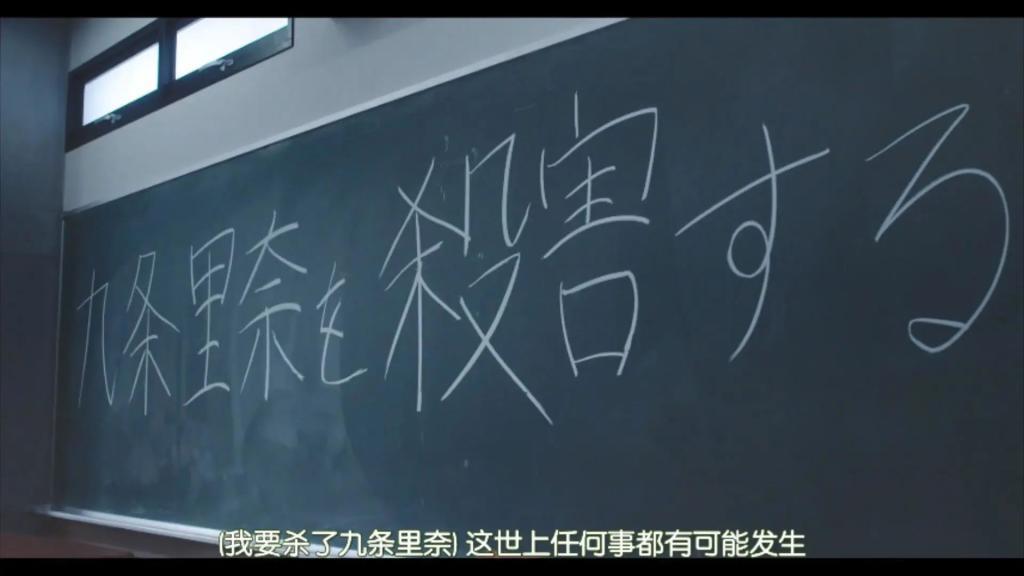 九条里奈を殺害する
(我要杀了九条里奈) 这世上任何事都有可能发生